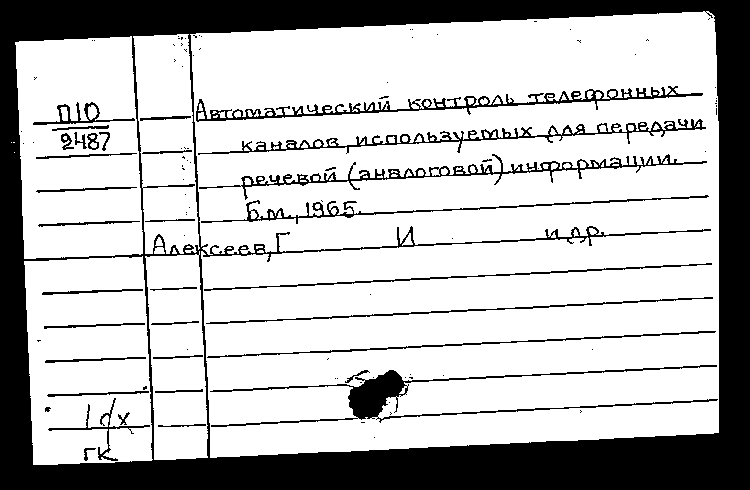 П10
2487
Автоматический контроль телефонных
каналов, используемых для передачи
речевой (аналоговой) информации.
Б.м., 1965.
Алексеев, Г И и др.
ГК